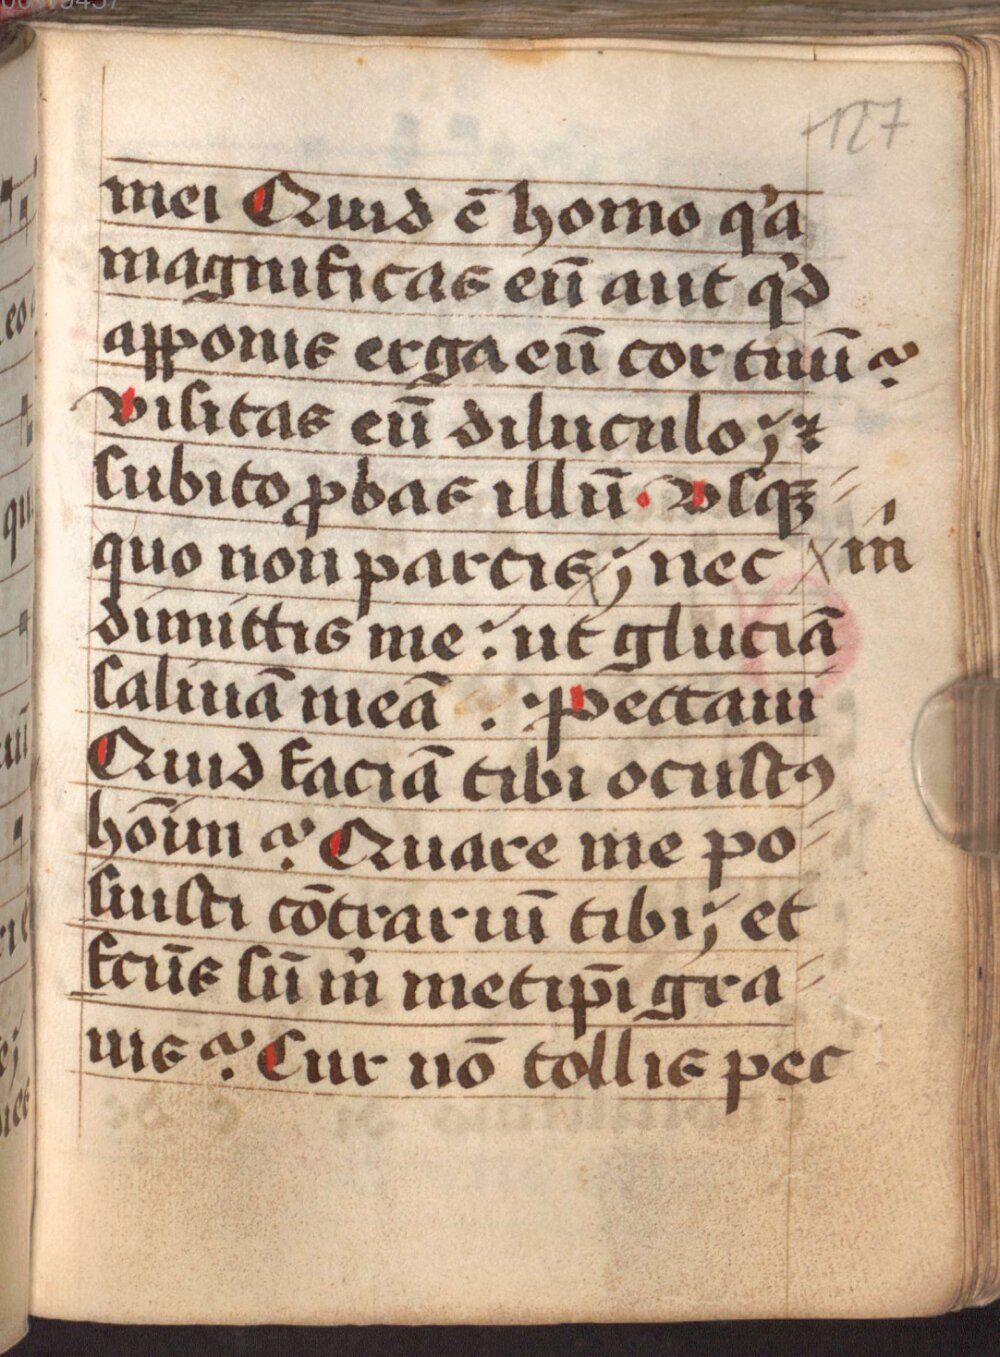 127
mei Quid ē homo q'a
magnificas eū aut q'd
apponis erga eū cor tuū?
visitas eū diluculo; ⁊
subito ꝓbas illū. Vsqꝫ
quo non parcis; nec m̄
dimittis me: ut gluciā
salivā meā : Peccaui
Quid faciā tibi o custꝰ
hōim? Quare me po
suisti cōtrariū tibi; et
fcūs sū m̄ metip̄i gra
uis? Cur nō tollis pec